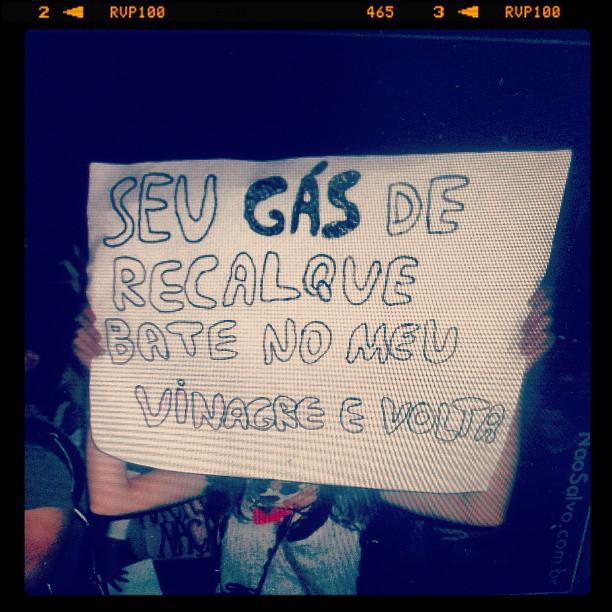 2 RVP100 465 3 RVP100
SEU GÁS DE
RECALQUE
BATE NO MEU
VINAGRE E VOLTA
NaoSalvo.com.br